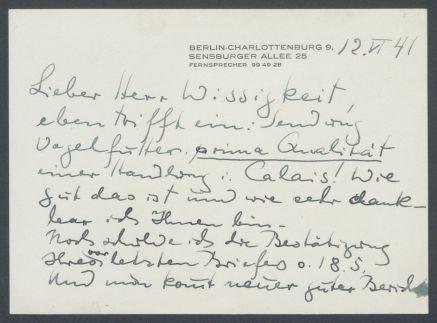 BERLIN-CHARLOTTENBURG 9,
SENSBURGER ALLEE 25
FERNSPRECHER 99 49 28
12. VI 41
Lieber Herr Wissigkeit,
eben trifft ein: Sendung
Vogelfutter. prima Qualität
einer Handlung i. Calais! Wie
gut das ist und wie sehr dank-
bar ich Ihnen bin.
Noch schulde ich die Bestätigung
Ihres vorletzten Briefes v. 18.5.
Und nun kommt neuer guter Bericht